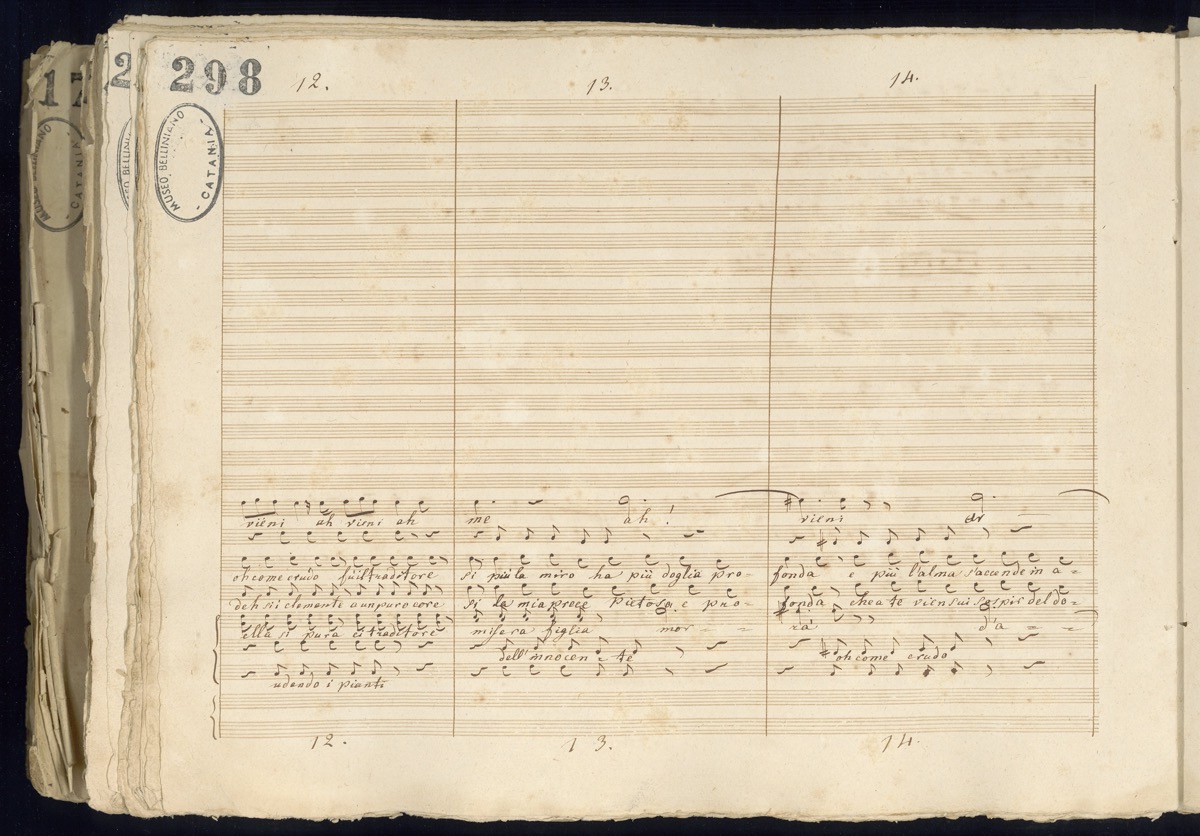 298
12. 13. 14.
MUSEO BELLINIANO
- CATANIA -
vieni ah vieni ah me ah! vieni
oh come crudo fu il traditore si più la miro ha più doglia pro- fonda e più l'alma s'accende in a=
deh sii clemente a un puro core si la mia prece pietosa e pro- fonda che a te vien sui sospir del do=
ella si pura e il traditore misera figlia mor - - rà d'a = =
dell'innocen = te oh come crudo
udendo i pianti
12. 13. 14.